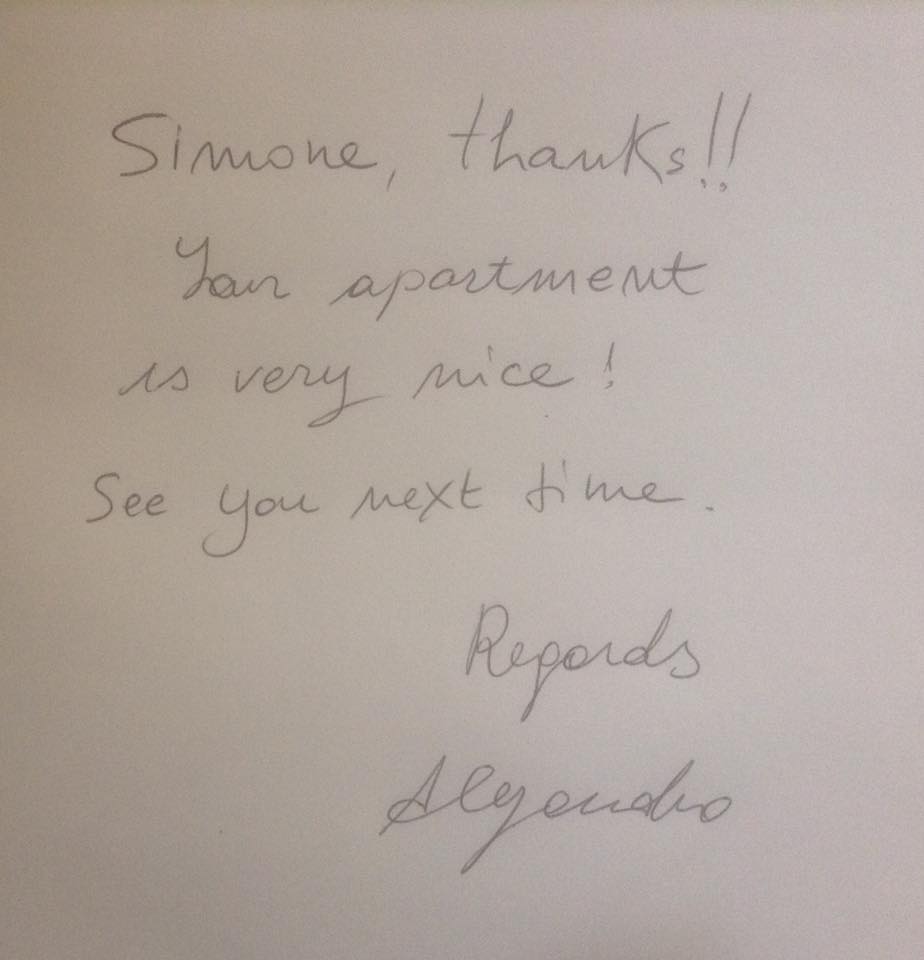 Simone, thanks!!
Your apartment
is very nice!
See you next time.
Regards
Alejandro